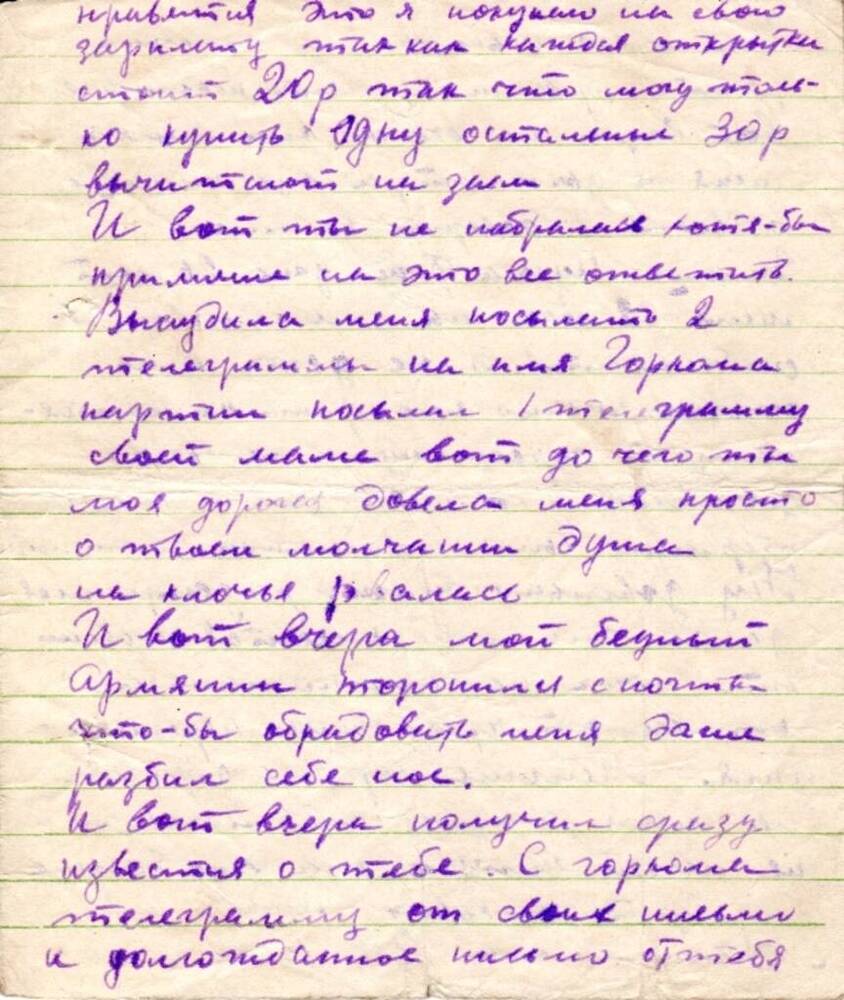 нравятся это я покупаю на свою
зарплату так как каждая открытка
стоит 20р так что могу толь-
ко купить одну остальные 30р
вычитают на заем
И вот ты не набралась хотя-бы
на это все ответить.
Вынудила меня посылать 2
телеграммы на имя Горкома
партии посылал 1 телеграмму
своей маме вот до чего ты
моя дорогая довела меня просто
о твоем молчании душа
на клочья рвалась
И вот вчера мой бедный
Армянин торопился с почты
что-бы обрадовать меня даже
разбил себе нос.
И вот вчера получил сразу
известия о тебе. С горкома
телеграмму от своих письмо
и долгожданное письмо от тебя